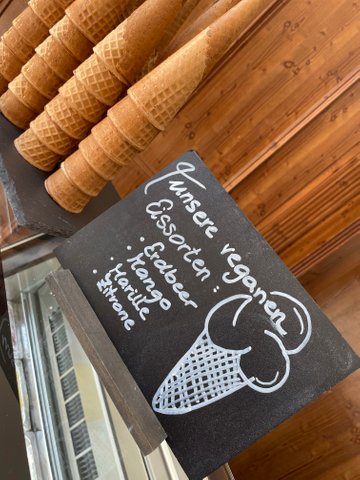 unsere veganen
Eissorten:
· Erdbeer
· Mango
· Marille
· Zitrone